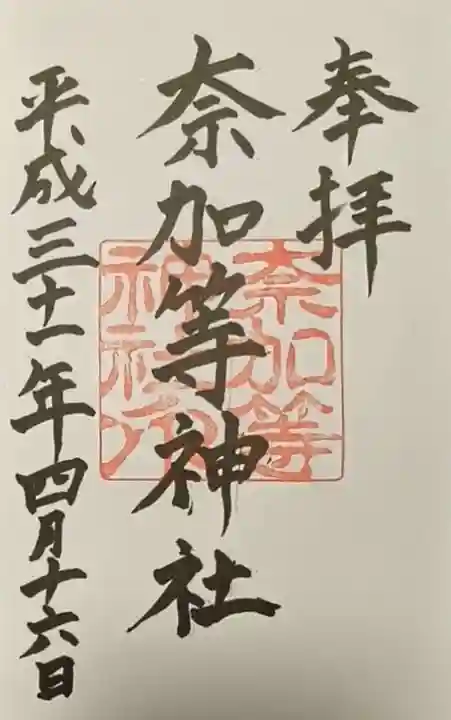 奉拝
奈加等神社
奈加等
神社印
平成三十一年四月十六日